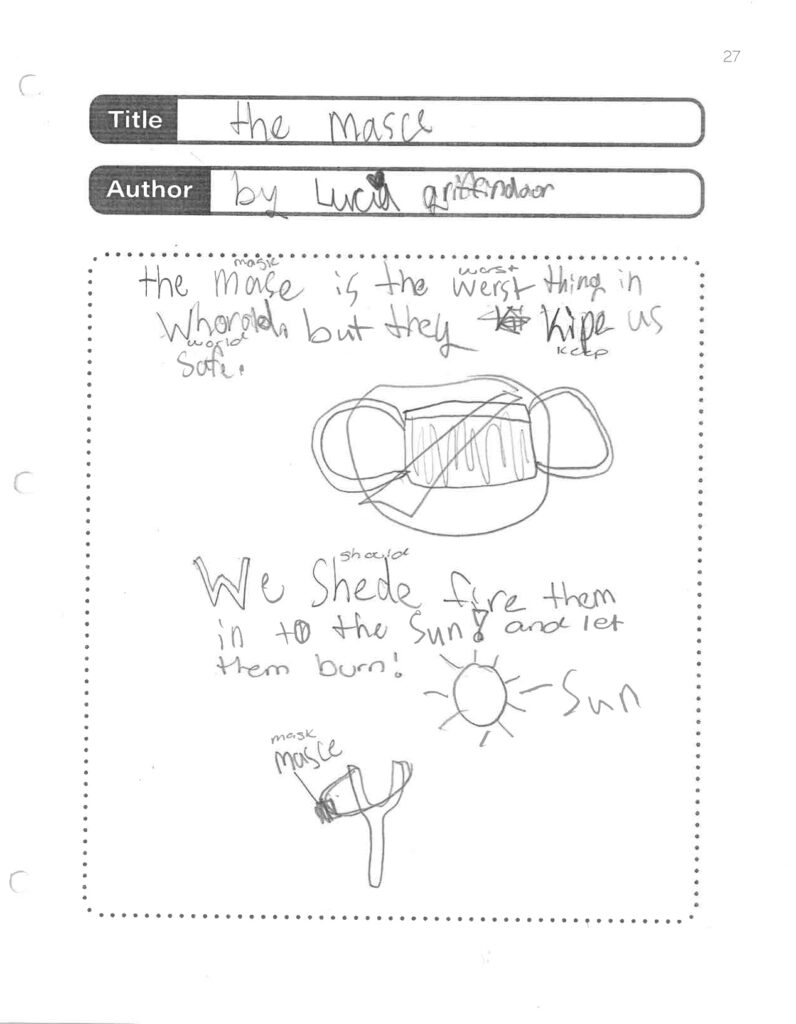 27
Title the masce
Author by Lucia griffindoor
mask worst
the masce is the werst thing in
Whorold. but they kipe us
world keep
safe.
should
We Shede fire them
in to the sun! and let
them burn!
Sun
mask
masce